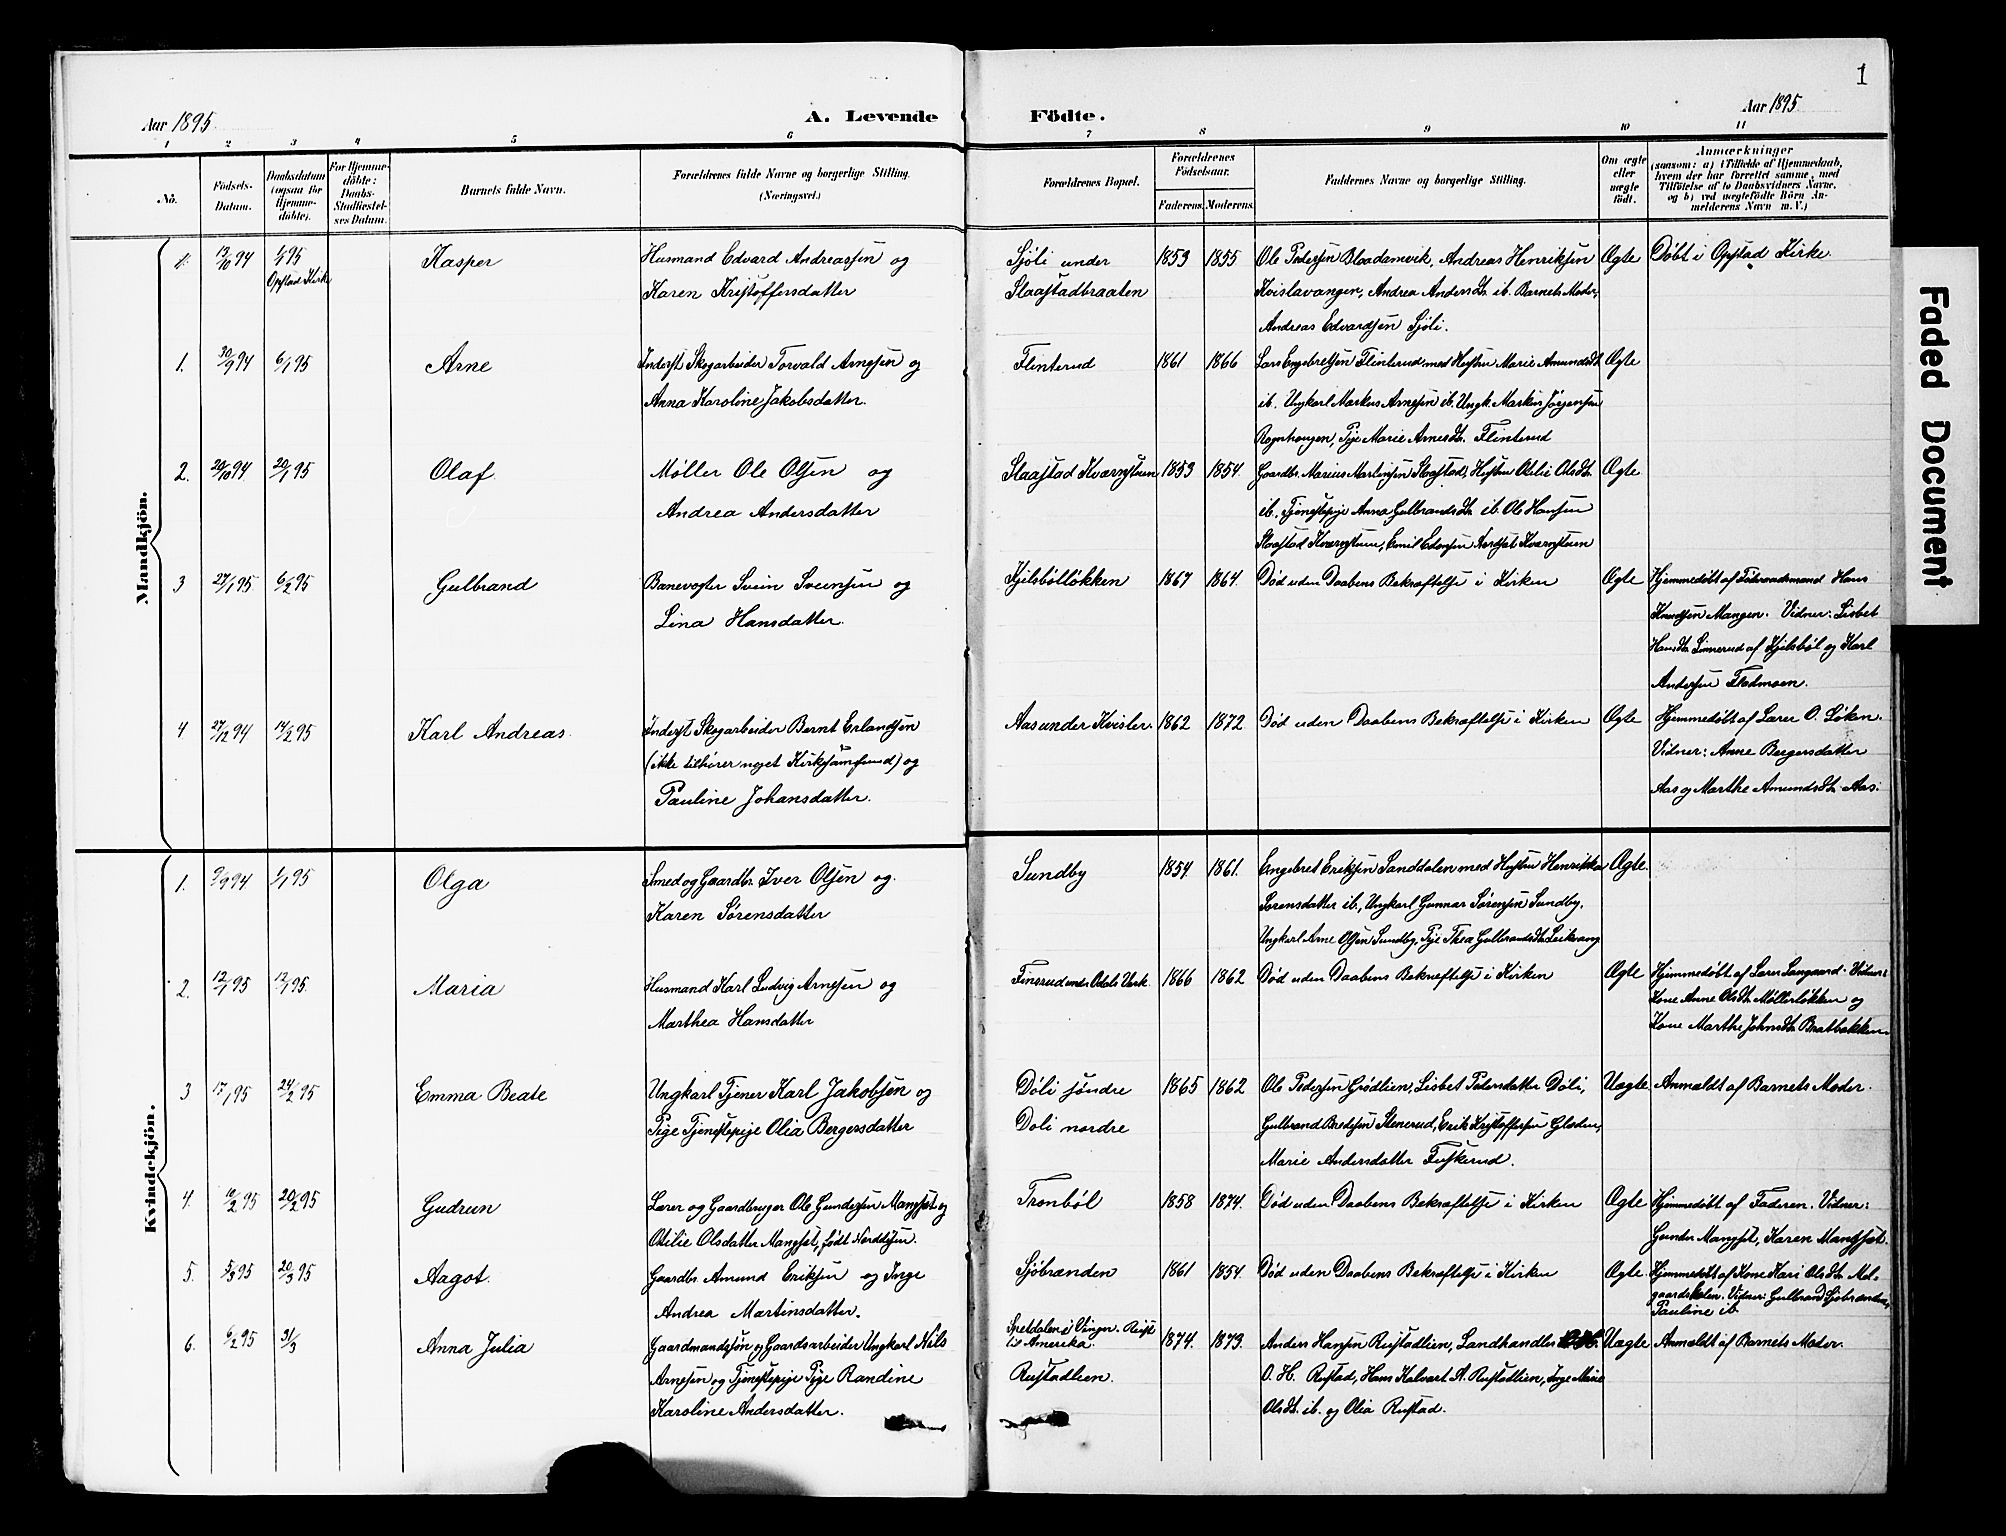 1
Aar 1895.
A. Levende
Födte.
Aar 1895
1 2 3 4 5 6 7 8 9 10 11
No.
Födsels-Datum.
Daabsdatum (ogsaa for Hjemme-döbte).
For Hjemme-döbte: Daabs-Stadfæstel-ses Datum.
Barnets fulde Navn.
Forældrenes fulde Navne og borgerlige Stilling. (Næringsvei.)
Forældrenes Bopæl.
Forældrenes Födselsaar.
Faderens. Moderens.
Faddernes Navne og borgerlige Stilling.
Om ægte eller uægte födt.
Anmærkninger
(saasom: a) i Tilfælde af Hjemmedaab, hvem der har forrettet samme, med Tilföielse af to Daabsvidners Navne, og b) ved uægtefödte Börn An-melderens Navn m. V.)
Mandkjön.
13/10 94 1/1 95 Kasper Husmand Edvard Andreassen og Sjøli under 1853 1855 Ole Pedersen Bloddamvik, Andreas Henriksen Ægte Døbt i Opstad Kirke
Opstad Kirke Karen Kristoffersdatter Slaastadbraaten Kvislavangen, Andrea Andersdtr ib. Barnets Moder,
Andreas Edvardsen Sjøli.
1. 30/9 94 6/1 95 Arne Inderst Skogarbeider Torvald Arnesen og Flinterud 1861 1866 Lars Engebretsen Flinterud med Hustru Marie Amundsdt Ægte
Anna Karoline Jakobsdatter. ib. Ungkarl Markus Arnesen ib. Ungk. Markus Jørgensen
Rognhaugen, Pige Marie Arnesdtr. Flinterud
2. 20/10 94 20/1 95 Olaf Møller Ole Olsen og Slaastad Kværnstuen 1853 1854 Gaardbr. Marius Martinsen Slaastad, Hustru Otilie Olsdtr Ægte
Andrea Andersdatter ib. Tjenestepige Anna Gulbrandsdtr ib. Ole Hansen
Slaastad Kværnstuen, Emil Kværnstuen
3 27/1 95 6/2 95 Gulbrand Banevogter Svein Sveinsen og Kjilsbølløkken 1867 1864 Død uden Daabens Bekræftelse i Kirken Ægte Hjemmedøbt af Hans
Lina Hansdatter. Knudsen Mangen. Vidner: Lisbet
Hansdtr Linnerud af Kjilsbøl og Karl
Andersen Fladmoen.
4 27/12 94 14/2 95 Karl Andreas. Inderst Skogarbeider Bernt Erlandsen Aas under Kvisler. 1862 1872 Død uden Daabens Bekræftelse i Kirken Ægte Hjemmedøbt af Lærer O. Løken.
(ikke tilhører noget Kirkesamfund) og Vidner: Anne Bergersdatter
Pauline Johansdatter. Aas og Marthe Amundsdtr Aas.
Kvindekjön.
1. 9/9 94 1/1 95 Olga Smed og Gaardbr. Iver Olsen og Sundby 1854 1861. Engebret Eriksen Sanddalen med Hustru Henrikka Ægte.
Karen Sørensdatter Sørensdatter ib., Ungkarl Gunnar Sørensen Sundby.
Ungkarl Arne Olsen Sundby, Pige Thea Gulbrandsdtr Leikvang
2. 12/1 95 13/1 95. Maria Husmand Karl Ludvig Arnesen og Finsrud under Odals Værk. 1866 1862 Død uden Daabens Bekræftelse i Kirken Ægte Hjemmedøbt af Lærer Langaard. Vidner:
Marthea Hansdatter Kone Anne Olsdtr Møllerløkken og
Kone Marthe Johnsdtr Bratbakken.
3 17/1 95 24/2 95 Emma Beate Ungkarl Tjener Karl Jakobsen og Døli søndre 1865 1862 Ole Pedersen Grødlien, Lisbet Pedersdatter Døli, Uægte Anmeldt af Barnets Moder.
Pige Tjenestepige Olia Bergersdatter Døli nordre Gulbrand Bredesen Stenerud, Erik Kristoffersen Gladen,
Marie Andersdatter Fuskerud.
4. 10/2 95 20/2 95 Gudrun Lærer og Gaardbruger Ole Gundersen Mangset og Tronbøl 1858 1874. Død uden Daabens Bekræftelse i Kirken Ægte Hjemmedøbt af Faderen. Vidner:
Otilie Olsdatter Mangset, født Gunder Mangset, Karen Mangset.
5. 5/3 95 20/3 95 Aagot. Gaardbr. Amund Eriksen og Inge Sjøbrænden 1861 1854. Død uden Daabens Bekræftelse i Kirken Ægte Hjemmedøbt af Kone Kari Olsdtr
Andrea Martinsdatter. Vidner: Gulbrand Sjøbrænden,
Pauline ib
6. 6/2 95 31/3 Anna Julia Gaardmandssøn og Gaardsarbeider Ungkarl Nils i Vinger. Reist til Amerika. 1874. 1873. Anders Hansen Rustadlien, Landhandler Uægte Anmeldt af Barnets Moder.
Arnesen og Tjenestepige Pige Randine Rustadlien. O. H. Rustad, Hans Kalvart A. Rustadlien, Inge Marie
Karoline Andersdatter. Olsdt. ib. og Olia Rustad.
Faded Document